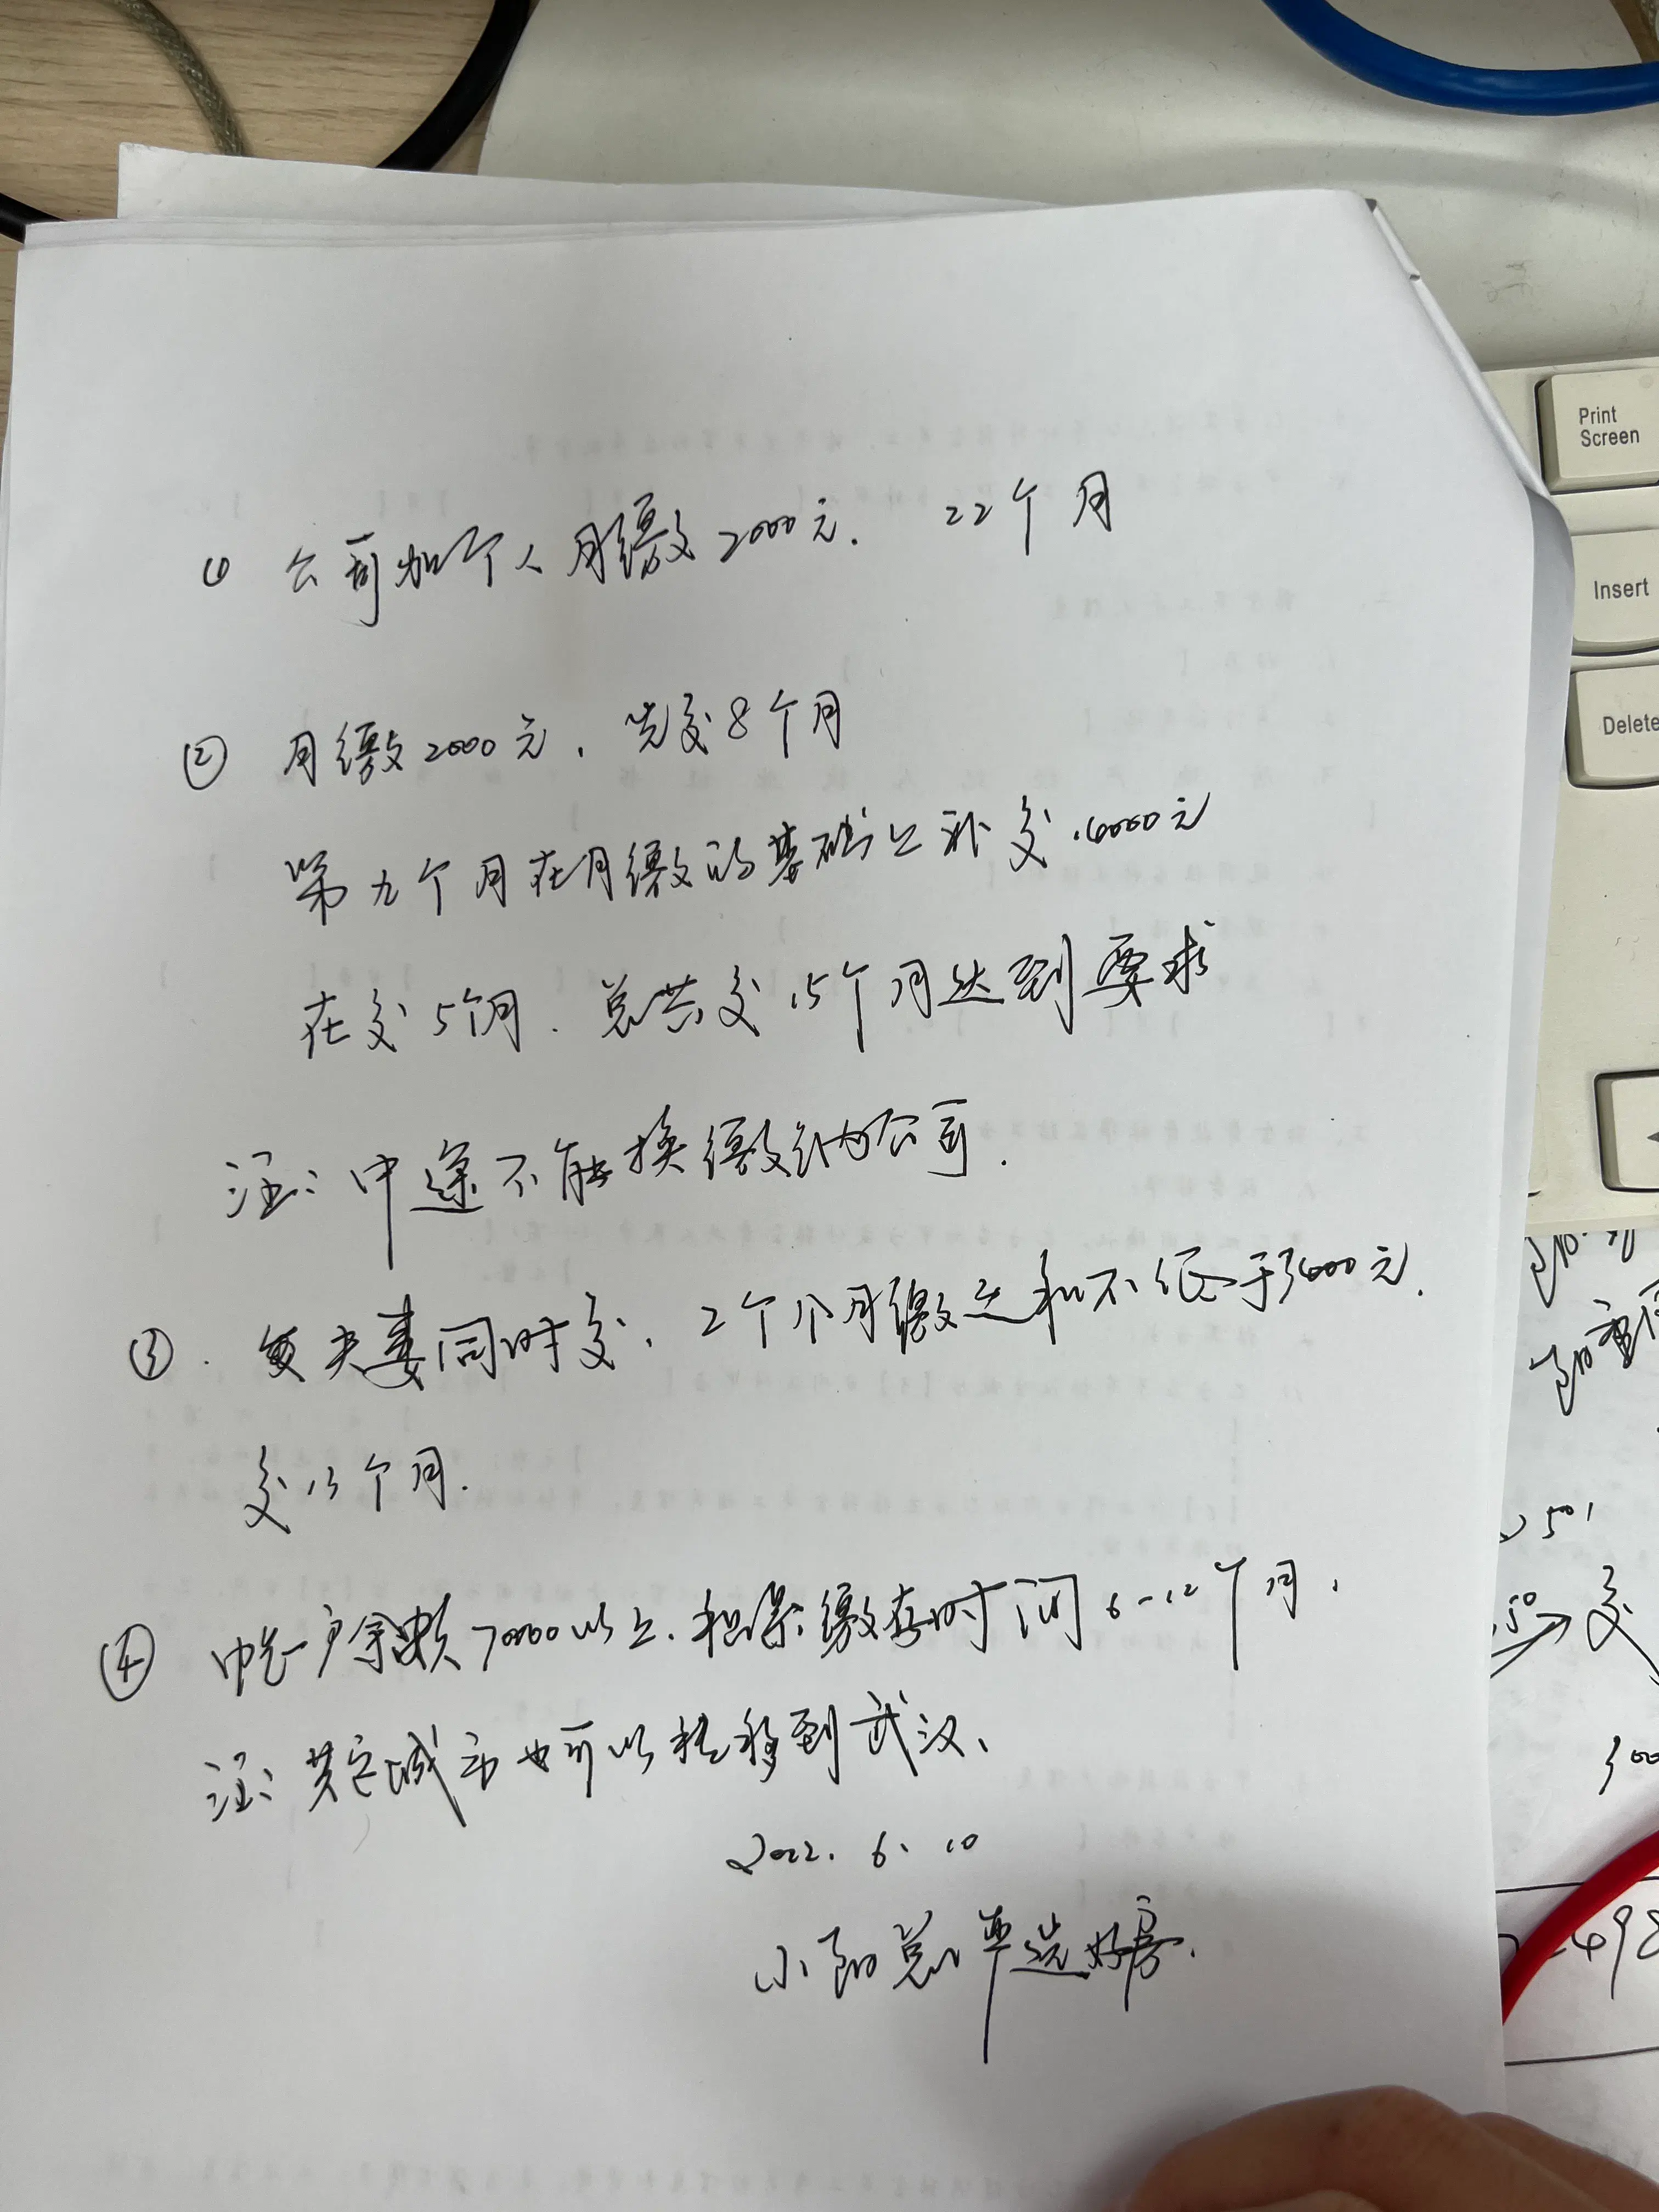 ① 公司加个人月缴2000元. 22个月
② 月缴2000元, 先交8个月
第九个月在月缴的基础上补交16000元
在交5个月. 总共交15个月达到要求
注: 中途不能换缴纳公司.
③. 夫妻同时交, 2个人月缴之和不低于3600元.
交13个月.
④ 帐户余额70000以上. 担保缴存时间6-12个月,
注: 其它城市也可以转移到武汉、
2022. 6. 10
小阳总 严选好房.
Print
Screen
Insert
Delete
501
50
交
498